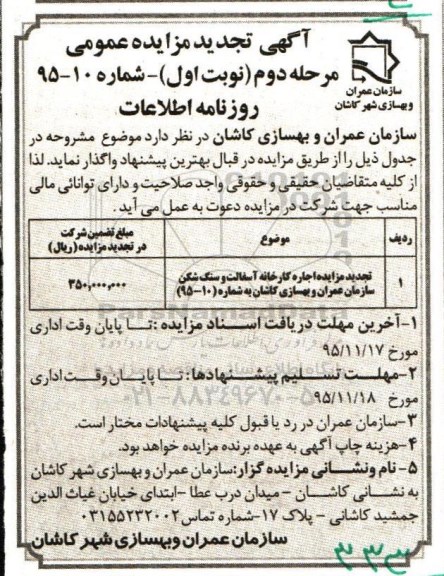 آگهی تجدید مزایده عمومی
مرحله دوم (نوبت اول) - شماره ۱۰-۹۵
روزنامه اطلاعات
سازمان عمران
و بهسازی شهر کاشان
سازمان عمران و بهسازی کاشان در نظر دارد موضوع مشروحه در
جدول ذیل را از طریق مزایده در قبال بهترین پیشنهاد واگذار نماید. لذا
از کلیه متقاضیان حقیقی و حقوقی واجد صلاحیت و دارای توانائی مالی
مناسب جهت شرکت در مزایده دعوت به عمل می آید.
ردیف موضوع مبلغ تضمین شرکت در تجدید مزایده (ریال)
۱ تجدید مزایده اجاره کارخانه آسفالت و سنگ شکن ۳۵۰,۰۰۰,۰۰۰
سازمان عمران و بهسازی کاشان به شماره (۱۰-۹۵)
۱-آخرین مهلت دریافت اسناد مزایده : تا پایان وقت اداری
مورخ ۹۵/۱۱/۱۷
۲-مهلت تسلیم پیشنهادها: تا پایان وقت اداری
مورخ ۹۵/۱۱/۱۸
۳-سازمان عمران در رد یا قبول کلیه پیشنهادات مختار است.
۴-هزینه چاپ آگهی به عهده برنده مزایده خواهد بود.
۵- نام و نشانی مزایده گزار: سازمان عمران و بهسازی شهر کاشان
به نشانی کاشان - میدان درب عطا -ابتدای خیابان غیاث الدین
جمشید کاشانی - پلاک ۱۷-شماره تماس ۰۳۱۵۵۲۳۲۰۰۲
سازمان عمران وبهسازی شهر کاشان
ParsNamadData
۰۲۱-۸۸۳۴۹۶۷۰-۵